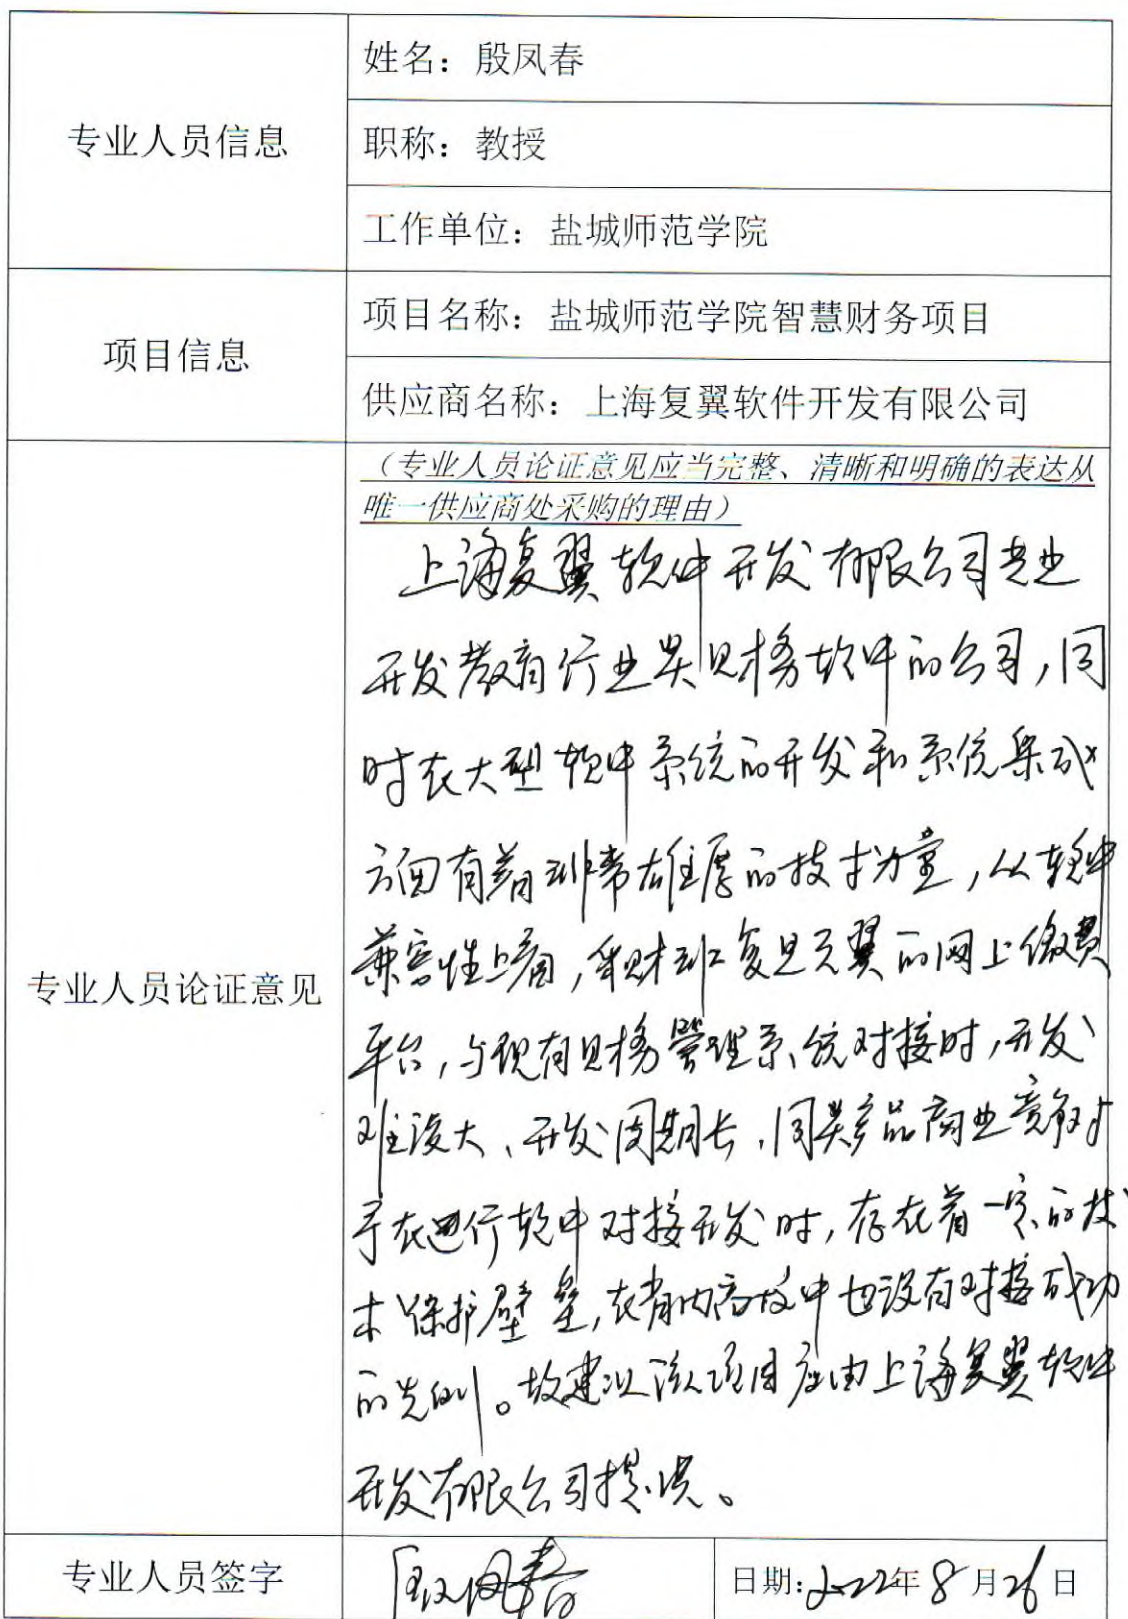 专业人员信息
姓名：殷凤春
职称：教授
工作单位：盐城师范学院
项目信息
项目名称：盐城师范学院智慧财务项目
供应商名称：上海复翼软件开发有限公司
专业人员论证意见
（专业人员论证意见应当完整、清晰和明确的表达从
唯一供应商处采购的理由）
上海复翼软件开发有限公司专业
开发教育行业类财务软件的公司，同
时在大型软件系统的开发和系统集成
方面有着非常雄厚的技术力量，从软件
兼容性上看，采购非复旦天翼的网上缴费
平台，与现有财务管理系统对接时，开发
难度大、开发周期长，同类产品商业竞争对
手在进行软件对接开发时，存在着一定的技
术保护壁垒，在省内高校中也没有对接成功
的先例。故建议该项目应由上海复翼软件
开发有限公司提供。
专业人员签字
殷凤春
日期：2022年8月26日